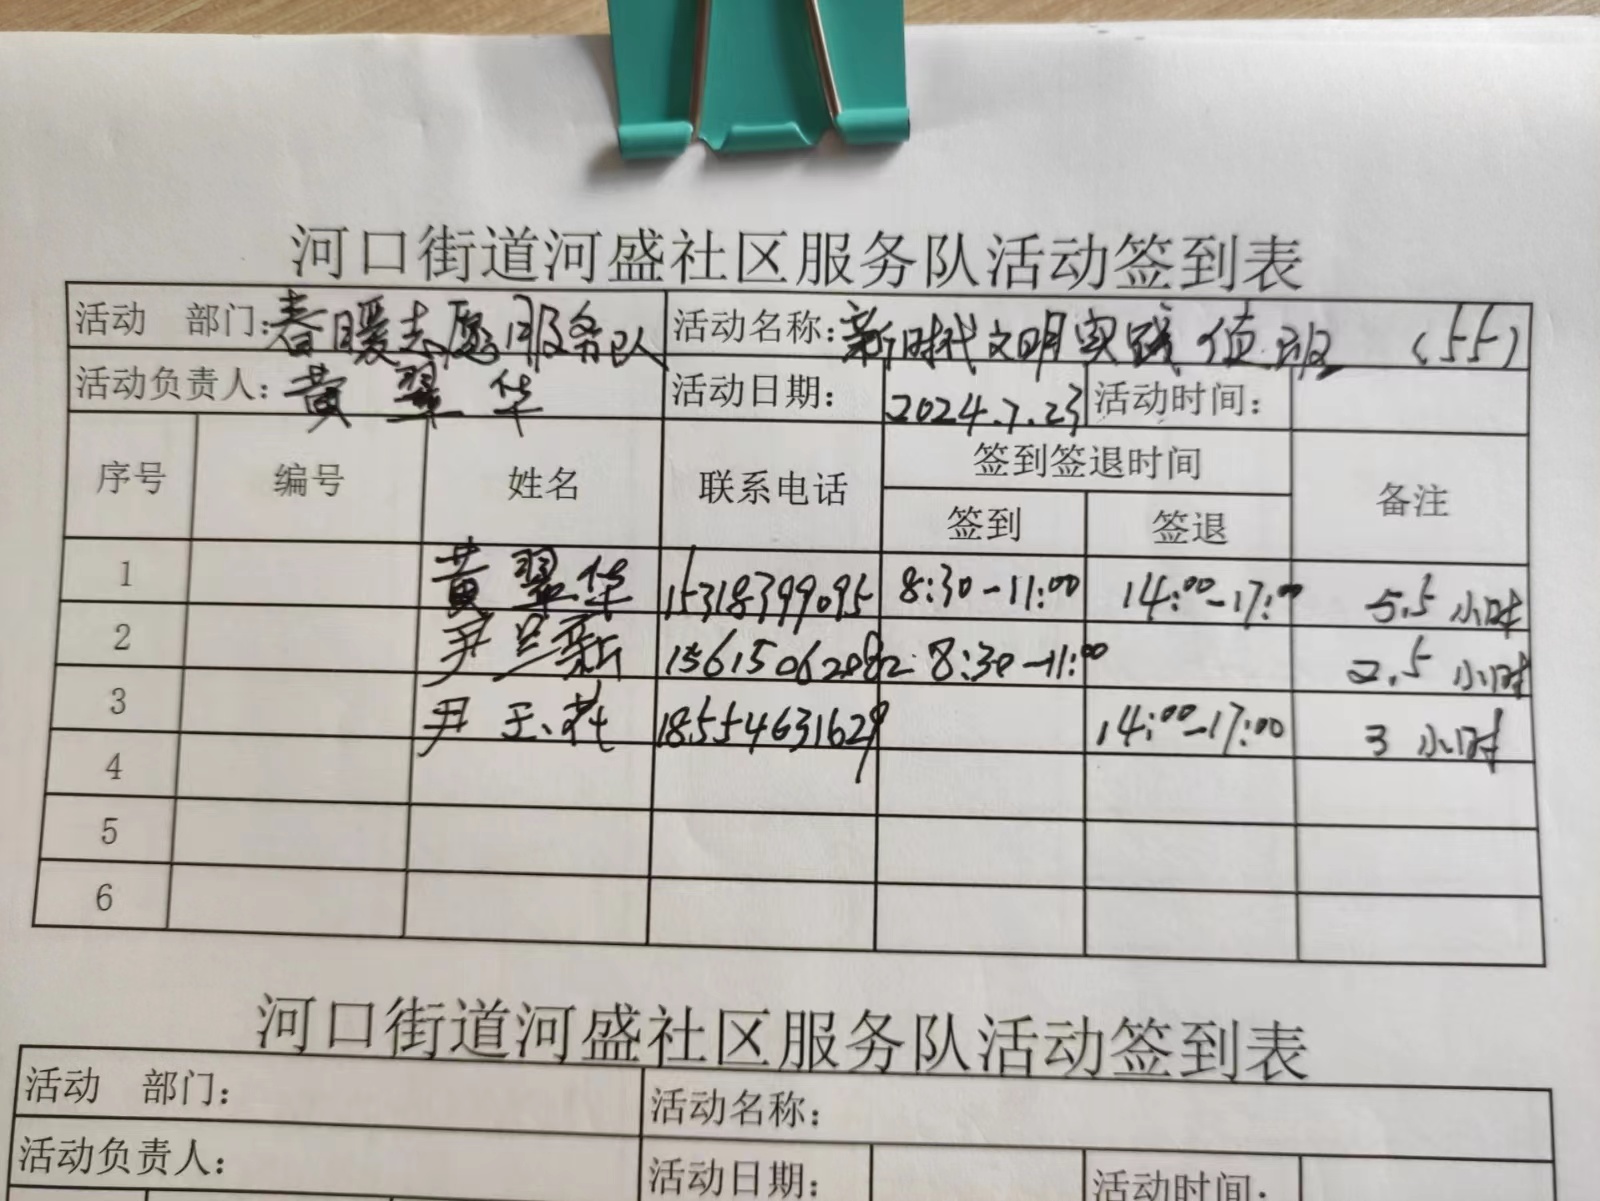 河口街道河盛社区服务队活动签到表
活动 部门:春暖志愿服务队 活动名称:新时代文明实践值班 (55)
活动负责人:黄翠华 活动日期: 2024.7.23 活动时间:
序号 编号 姓名 联系电话 签到签退时间 备注
签到 签退
1 黄翠华 15318399095 8:30-11:00 14:00-17:00 5.5小时
2 尹兰新 15615062082 8:30-11:00 2.5小时
3 尹玉花 18554631629 14:00-17:00 3小时
4
5
6
河口街道河盛社区服务队活动签到表
活动 部门: 活动名称:
活动负责人: 活动日期: 活动时间: